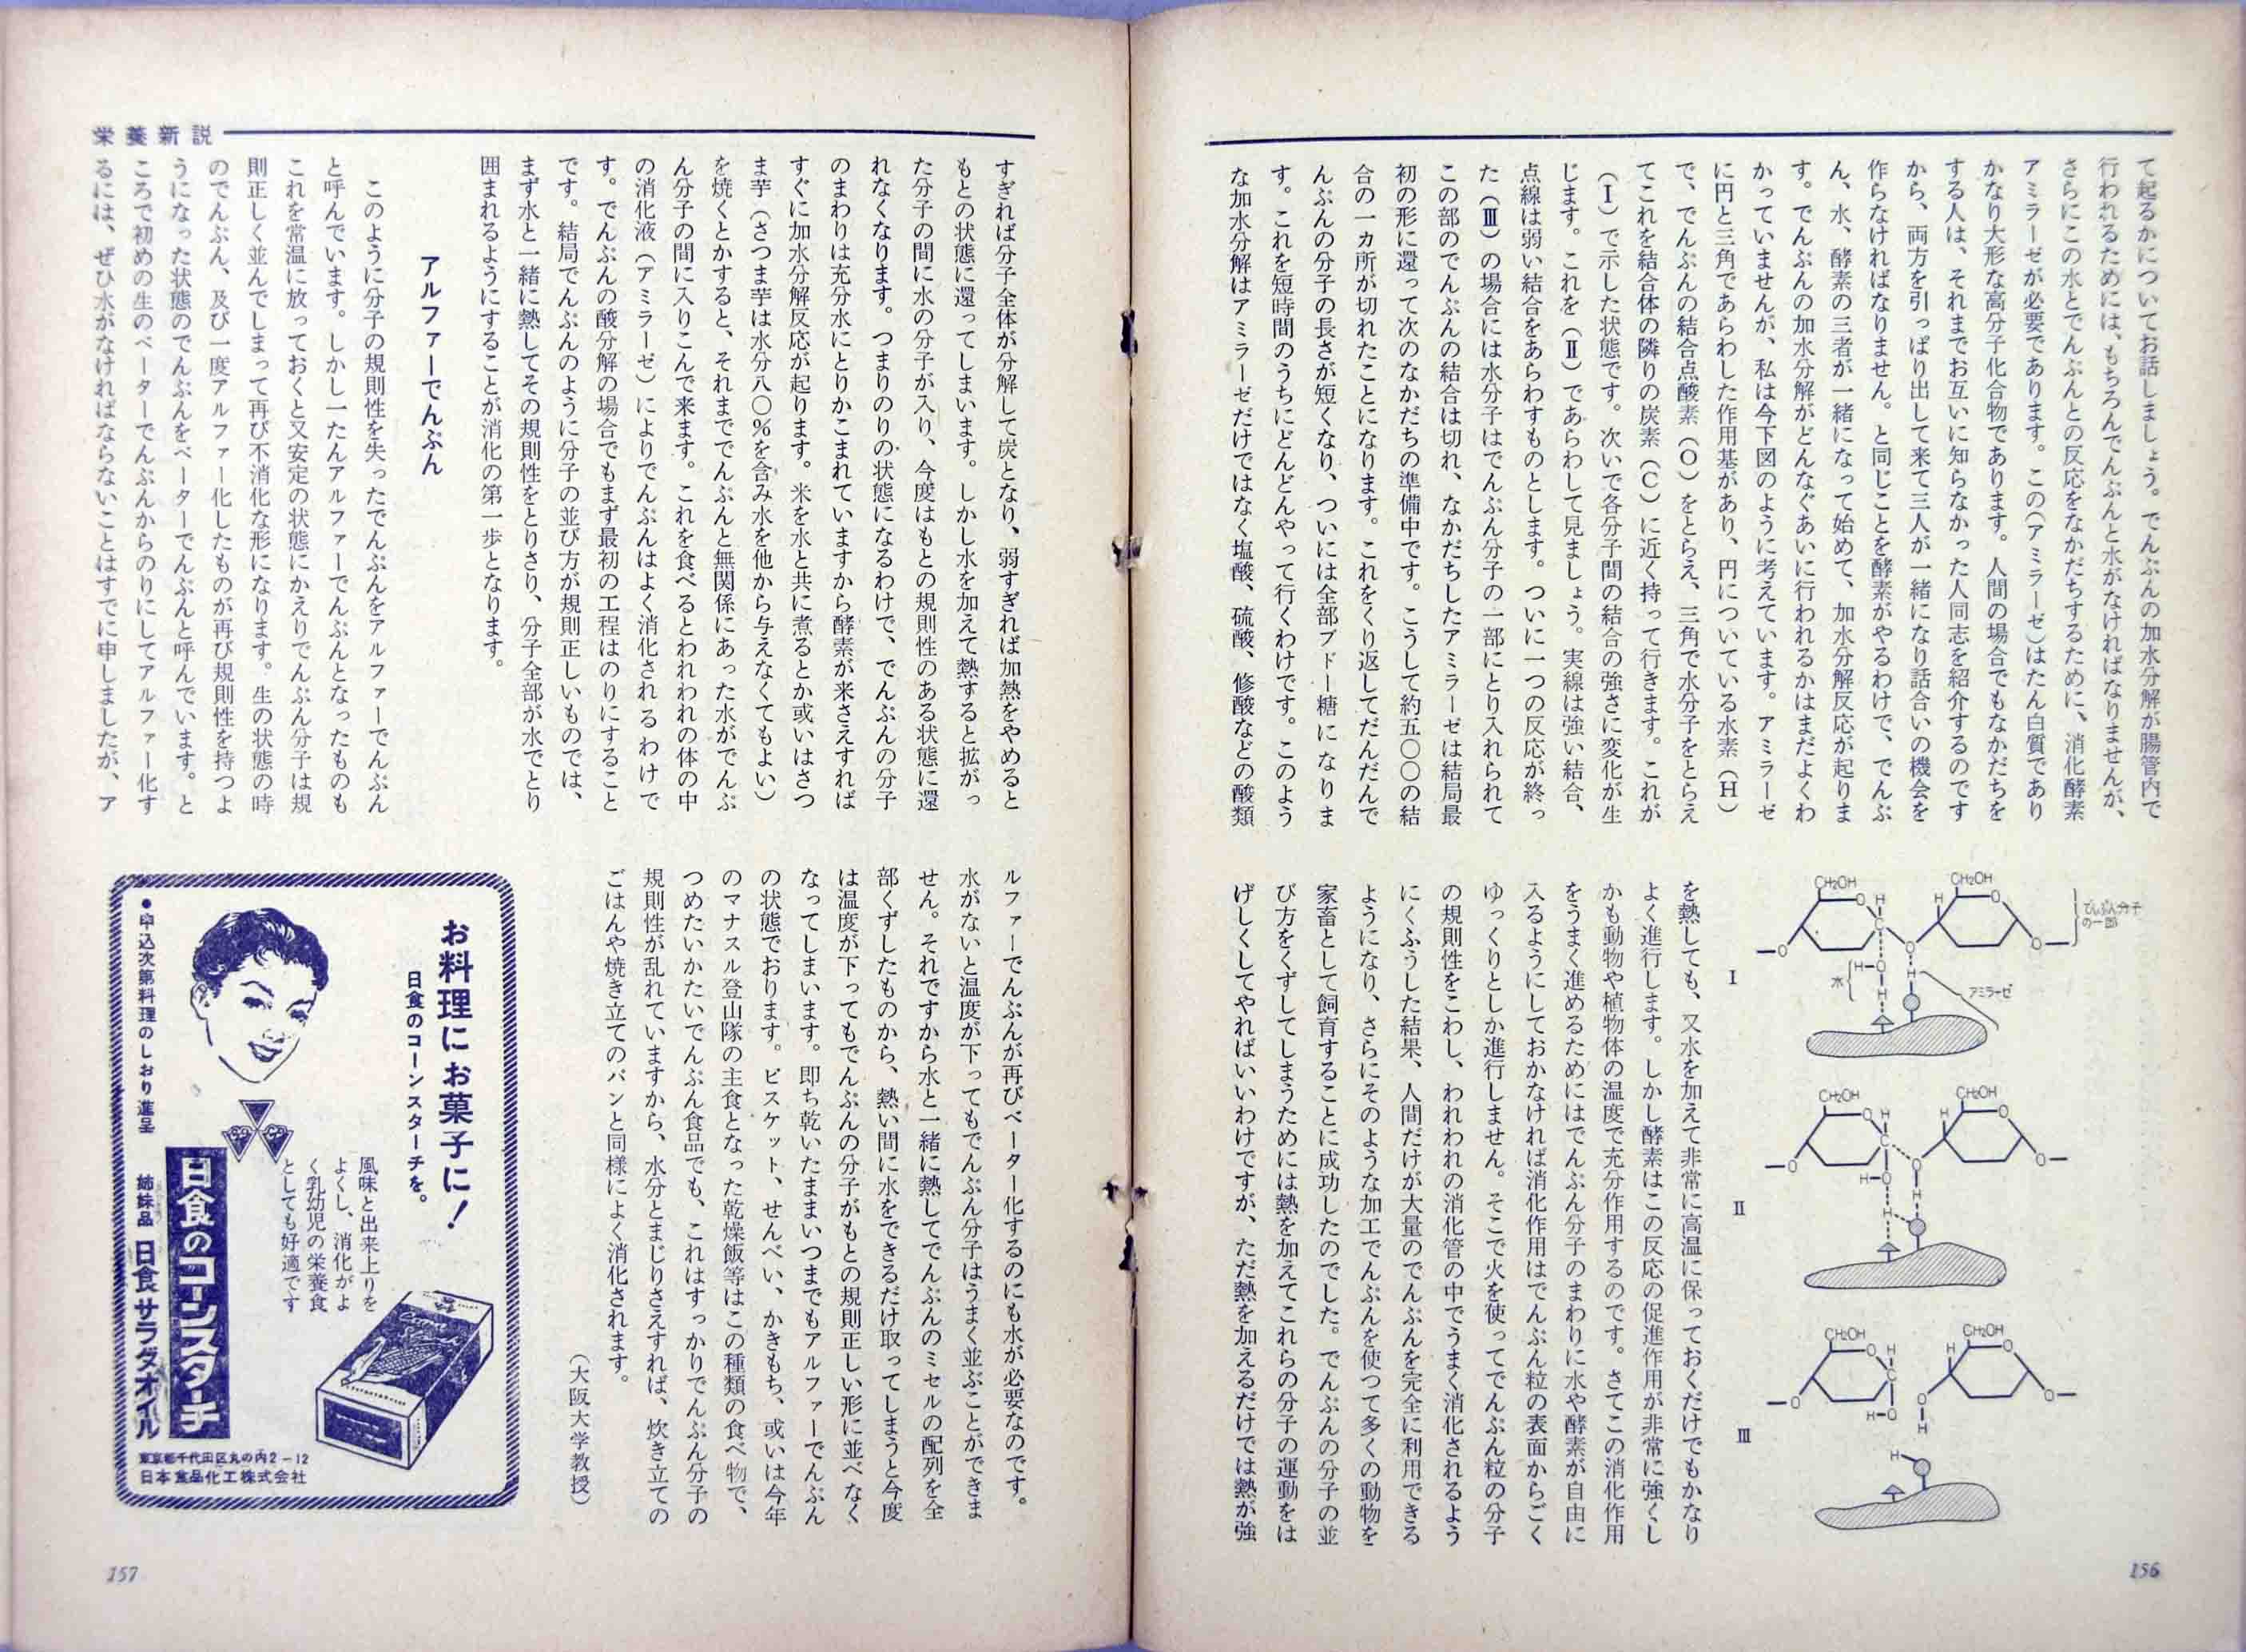 て起るかについてお話しましょう。でんぷんの加水分解が腸管内で
行われるためには、もちろんでんぷんと水がなければなりませんが、
さらにこの水とでんぷんとの反応をなかだちするために、消化酵素
アミラーゼが必要であります。この(アミラーゼ)はたん白質であり
かなり大形な高分子化合物であります。人間の場合でもなかだちを
する人は、それまでお互いに知らなかった人同志を紹介するのです
から、両方を引っぱり出して来て三人が一緒になり話合いの機会を
作らなければなりません。と同じことを酵素がやるわけで、でんぷ
ん、水、酵素の三者が一緒になって始めて、加水分解反応が起りま
す。でんぷんの加水分解がどんなぐあいに行われるかはまだよくわ
かっていませんが、私は今下図のように考えています。アミラーゼ
に円と三角であらわした作用基があり、円についている水素(H)
で、でんぷんの結合点酸素(O)をとらえ、三角で水分子をとらえ
てこれを結合体の隣りの炭素(C)に近く持って行きます。これが
(Ⅰ)で示した状態です。次いで各分子間の結合の強さに変化が生
じます。これを(Ⅱ)であらわして見ましょう。実線は強い結合、
点線は弱い結合をあらわすものとします。ついに一つの反応が終っ
た(Ⅲ)の場合には水分子はでんぷん分子の一部にとり入れられて
この部のでんぷんの結合は切れ、なかだちしたアミラーゼは結局最
初の形に還って次のなかだちの準備中です。こうして約五〇〇の結
合の一カ所が切れたことになります。これをくり返してだんだんで
んぷんの分子の長さが短くなり、ついには全部ブドー糖になりま
す。これを短時間のうちにどんどんやって行くわけです。このよう
な加水分解はアミラーゼだけではなく塩酸、硫酸、修酸などの酸類
でんぷん分子
の一部
CH₂OH
CH₂OH
水
アミラーゼ
Ⅰ
CH₂OH
CH₂OH
Ⅱ
CH₂OH
CH₂OH
Ⅲ
を熱しても、又水を加えて非常に高温に保っておくだけでもかなり
よく進行します。しかし酵素はこの反応の促進作用が非常に強くし
かも動物や植物体の温度で充分作用するのです。さてこの消化作用
をうまく進めるためにはでんぷん分子のまわりに水や酵素が自由に
入るようにしておかなければ消化作用はでんぷん粒の表面からごく
ゆっくりとしか進行しません。そこで火を使ってでんぷん粒の分子
の規則性をこわし、われわれの消化管の中でうまく消化されるよう
にくふうした結果、人間だけが大量のでんぷんを完全に利用できる
ようになり、さらにそのような加工でんぷんを使つて多くの動物を
家畜として飼育することに成功したのでした。でんぷんの分子の並
び方をくずしてしまうためには熱を加えてこれらの分子の運動をは
げしくしてやればいいわけですが、ただ熱を加えるだけでは熱が強
156
栄養新説
すぎれば分子全体が分解して炭となり、弱すぎれば加熱をやめると
もとの状態に還ってしまいます。しかし水を加えて熱すると拡がっ
た分子の間に水の分子が入り、今度はもとの規則性のある状態に還
れなくなります。つまりのりの状態になるわけで、でんぷんの分子
のまわりは充分水にとりかこまれていますから酵素が来さえすれば
すぐに加水分解反応が起ります。米を水と共に煮るとか或いはさつ
ま芋(さつま芋は水分八〇%を含み水を他から与えなくてもよい)
を焼くとかすると、それまででんぷんと無関係にあった水がでんぷ
ん分子の間に入りこんで来ます。これを食べるとわれわれの体の中
の消化液(アミラーゼ)によりでんぷんはよく消化されるわけで
す。でんぷんの酸分解の場合でもまず最初の工程はのりにすること
です。結局でんぷんのように分子の並び方が規則正しいものでは、
まず水と一緒に熱してその規則性をとりさり、分子全部が水でとり
囲まれるようにすることが消化の第一歩となります。
アルファーでんぷん
このように分子の規則性を失ったでんぷんをアルファーでんぷん
と呼んでいます。しかし一たんアルファーでんぷんとなったものも
これを常温に放っておくと又安定の状態にかえりでんぷん分子は規
則正しく並んでしまって再び不消化な形になります。生の状態の時
のでんぷん、及び一度アルファー化したものが再び規則性を持つよ
うになった状態のでんぷんをベーターでんぷんと呼んでいます。と
ころで初めの生のベーターでんぷんからのりにしてアルファー化す
るには、ぜひ水がなければならないことはすでに申しましたが、ア
ルファーでんぷんが再びベーター化するのにも水が必要なのです。
水がないと温度が下ってもでんぷん分子はうまく並ぶことができま
せん。それですから水と一緒に熱してでんぷんのミセルの配列を全
部くずしたものから、熱い間に水をできるだけ取ってしまうと今度
は温度が下ってもでんぷんの分子がもとの規則正しい形に並べなく
なってしまいます。即ち乾いたままいつまでもアルファーでんぷん
の状態でおります。ビスケット、せんべい、かきもち、或いは今年
のマナスル登山隊の主食となった乾燥飯等はこの種類の食べ物で、
つめたいかたいでんぷん食品でも、これはすっかりでんぷん分子の
規則性が乱れていますから、水分とまじりさえすれば、炊き立ての
ごはんや焼き立てのパンと同様によく消化されます。
(大阪大学教授)
お料理にお菓子に!
日食のコーンスターチを。
風味と出来上りを
よくし、消化がよ
く乳幼児の栄養食
としても好適です
日食のコーンスターチ
●申込次第料理のしおり進呈
姉妹品 日食サラダオイル
東京都千代田区丸の内2−12
日本食品化工株式会社
157